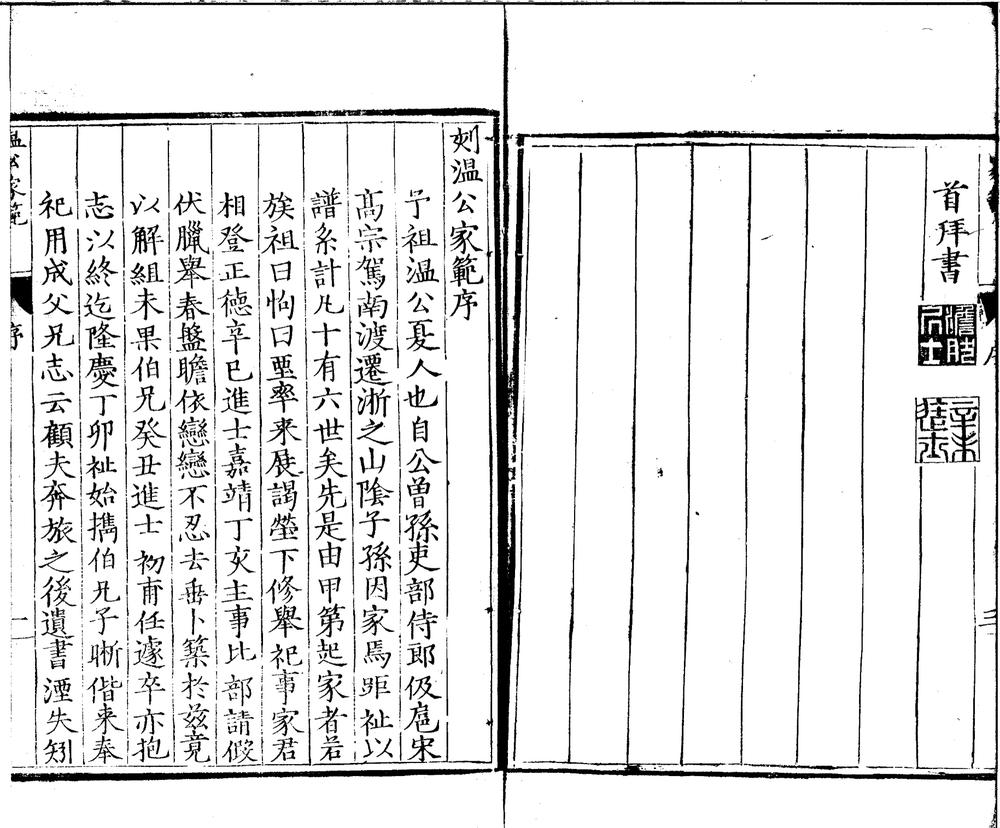 首拜書
刻温公家範序
予祖温公夏人也自公曽孫吏部侍郎伋扈宋
髙宗駕南渡遷浙之山隂子孫因家焉距祉以
譜系計凡十有六世矣先是由甲第起家者若
族祖曰恂曰堊率来展謁塋下修舉祀事家君
相登正德辛巳進士嘉靖丁亥主事比部請假
伏臘舉春盤瞻依戀戀不忍去垂卜築於兹竟
以解組未果伯兄癸丑進士初甫任遽卒亦抱
志以終迄隆慶丁卯祉始擕伯兄子晰偕来奉
祀用成父兄志云顧夫奔旅之後遺書湮失矧
温公家範
序
二